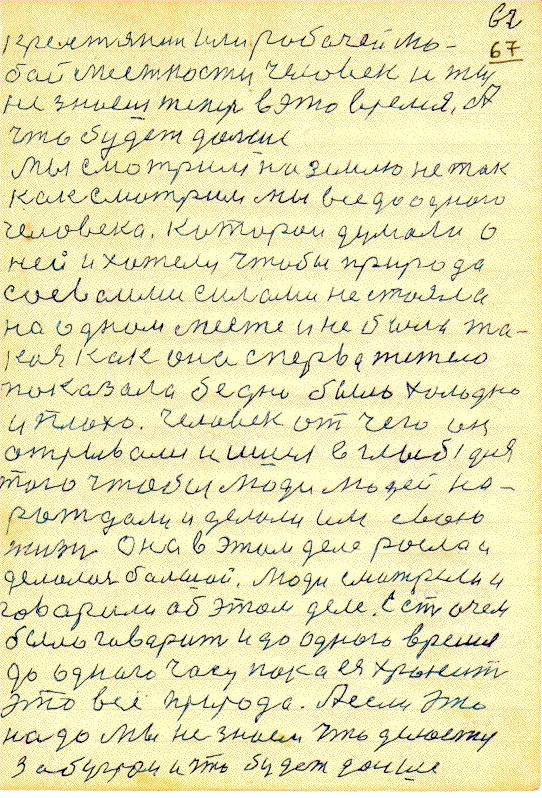 62
67
крестянин или рабочей лю-
бой местности человек и ту
не знаем тепер в это время. А
что будет дальше
Мы смотрим на землю не так
как смотрим мы все до одного
человека. Которои думали о
ней и хотели чтобы природа
своеми силами не стояла
на одном месте и не была та-
кая как она сперва
показала бедно было холодно
и плохо. Человек от чего он
отрывали и шли в глыбь для
того чтобы люди людей на-
рождали и делали им свою
жизн Она в этом деле росла и
делалая балшой. Люди смотрели и
говарили об этом деле. Ест о чем
было говарит и до одного время
до одного часу пока ея хранит
это всё природа. А если это
надо мы не знаем что
за бугром и что будет дальше